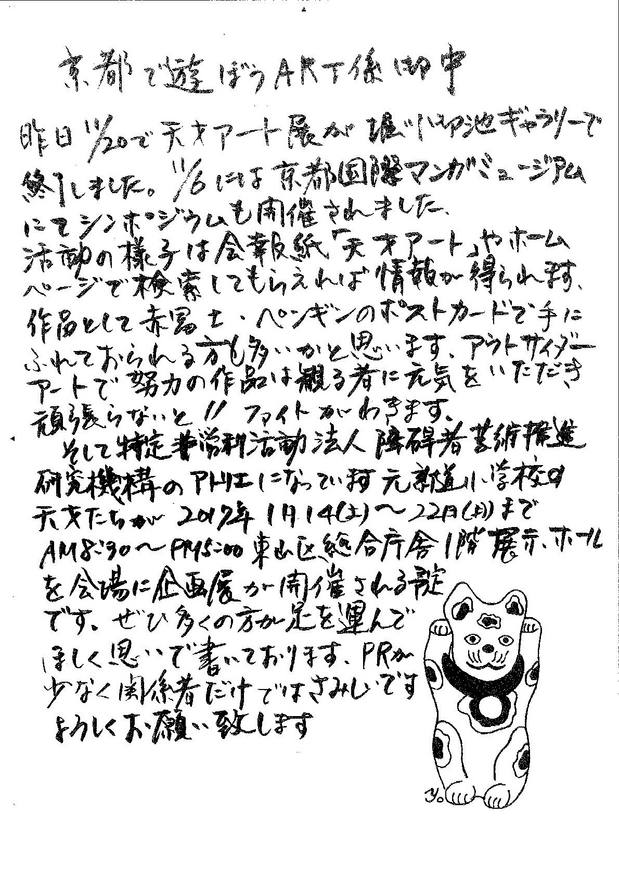 京都で遊ぼうART係御中
昨日11/20で天才アート展が堀川御池ギャラリーで
終了しました。11/6には京都国際マンガミュージアム
にてシンポジウムも開催されました、
活動の様子は会報紙「天才アート」やホーム
ページで検索してもらえれば情報が得られます、
作品として赤富士・ペンギンのポストカードで手に
ふれておられる方も多いかと思います、アウトサイダー
アートで努力の作品は観る者に元気をいただき
頑張らないと!! ファイトがわきます、
そして特定非営利活動法人障碍者芸術推進
研究機構のアトリエになっています元新道小学校の
天才たちが 2017年1月14(土)〜22日(月)まで
AM8:30〜PM5:00 東山区総合庁舎1階展示ホール
を会場に企画展が開催される予定
です、ぜひ多くの方が足を運んで
ほしく思いで書いております、PRが
少なく関係者だけではさみしいです
よろしくお願い致します
yo